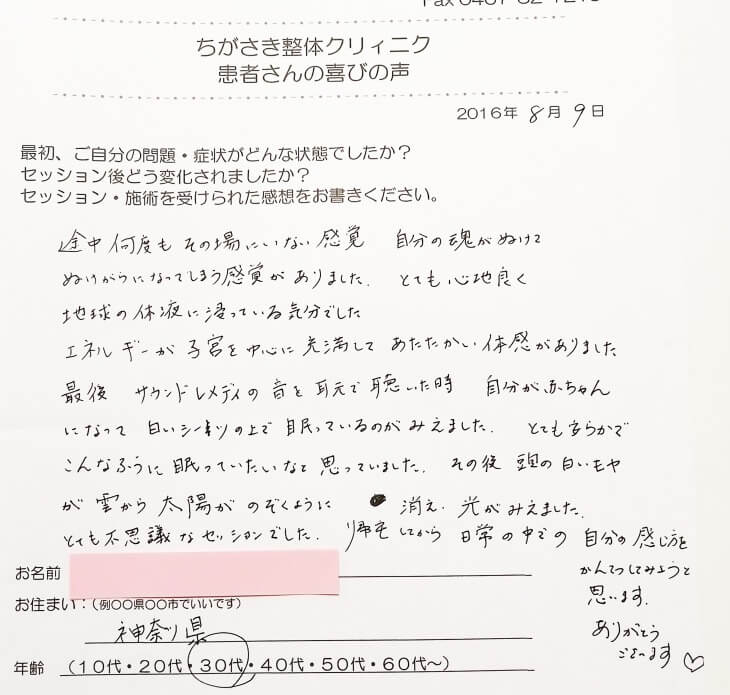 ちがさき整体クリィニク
患者さんの喜びの声
2016年 8月 9日
最初、ご自分の問題・症状がどんな状態でしたか？
セッション後どう変化されましたか？
セッション・施術を受けられた感想をお書きください。
途中何度もその場にいない感覚 自分の魂がぬけて
ぬけがらになってしまう感覚がありました. とても心地良く
地球の体液に浸っている気分でした
エネルギーが子宮を中心に充満してあたたかい体感がありました
最後 サウンドレメディの音を耳元で聴いた時 自分が赤ちゃん
になって白いシーツの上で眠っているのがみえました. とても安らかで
こんなふうに眠っていたいなと思っていました. その後 頭の白いモヤ
が雲から太陽がのぞくように 消え. 光がみえました.
とても不思議なセッションでした. 帰宅してから日常の中での 自分の感じ方を
かんさつしてみようと
思います.
ありがとう
ございます♡
お名前
お住まい：（例〇〇県〇〇市でいいです）
神奈川県
年齢 （10代・20代・30代・40代・50代・60代～）